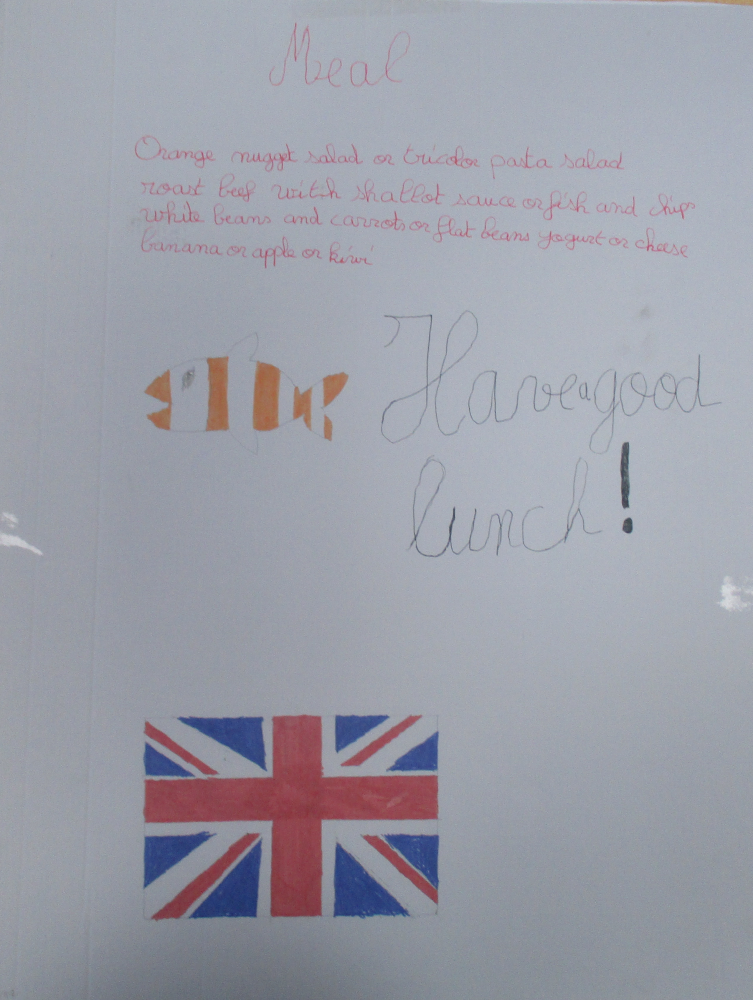 Meal
Orange nugget salad or tricolor pasta salad
roast beef with shallot sauce or fish and chips
white beans and carrots or flat beans yogurt or cheese
banana or apple or kiwi
Have a good
lunch!